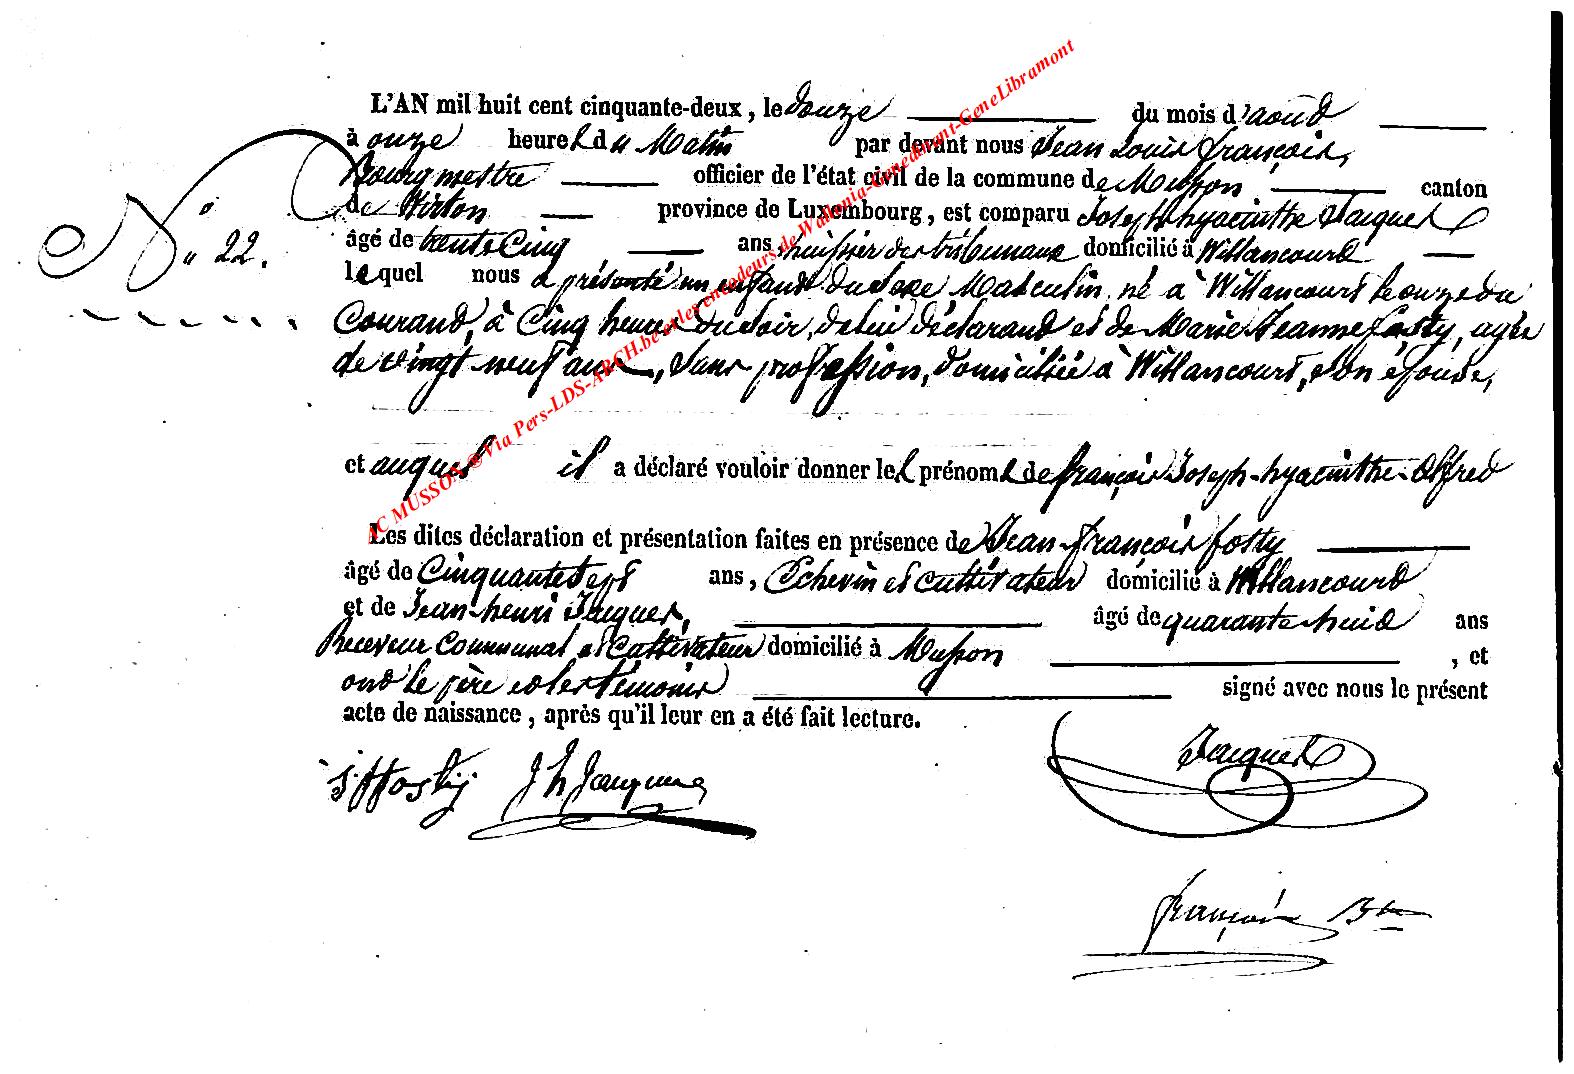 L'AN mil huit cent cinquante-deux, le douze du mois d'aoud
à onze heures du Matin par devant nous Jean Louis françois,
Bourgmestre officier de l'état civil de la commune de Musson canton
de Virton province de Luxembourg, est comparu Joseph-hyacinthe Jacquet
N° 22. âgé de trente Cinq ans, huissier des tribunaux domicilié à Willancourd
lequel nous a présenté un enfant du Sexe Masculin, né à Willancourt le onze du
Courand, à Cinq heures du Soir, de lui déclarand et de Marie Jeanne fosty, agée
de vingt neuf ans, Sans profession, domiciliée à Willancourt, son épouse,
et auquel il a déclaré vouloir donner les prénoms de françois Joseph-hyacinthe-Alfred
Les dites déclaration et présentation faites en présence de Jean-françois fosty
âgé de Cinquante Sept ans, Echevin et cultivateur domicilié à Willancourd
et de Jean-henri Jacquet, âgé de quarante huid ans
Receveur Communal et Cultivateur domicilié à Musson , et
ond le père et les témoins signé avec nous le présent
acte de naissance, après qu'il leur en a été fait lecture.
Jacquet
J f fosty J h Jacquet
françois Bтre
AC MUSSON@Via Pers-LDS-ARCH.be et les encodeurs de Wallonia-Genedinant-GeneLibramont